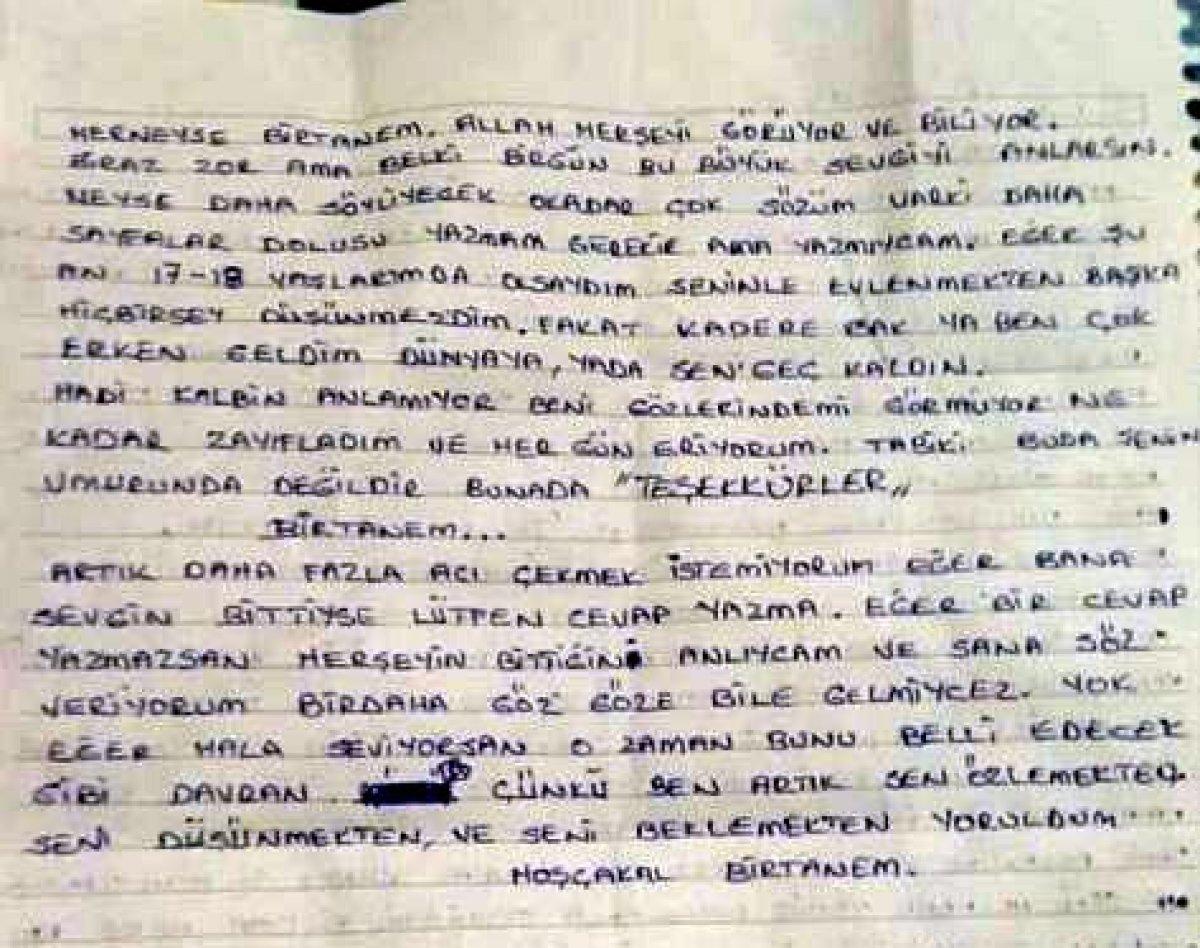 HERNEYSE BİRTANEM. ALLAH HERŞEYİ GÖRÜYOR VE BİLİYOR.
BİRAZ ZOR AMA BELKİ BİRGÜN BU BÜYÜK SEVGİYİ ANLARSIN.
NEYSE DAHA SÖYLİYECEK OKADAR ÇOK SÖZÜM VARKİ DAHA
SAYFALAR DOLUSU YAZMAM GEREKİR AMA YAZMIYCAM. EĞER ŞU
AN 17-18 YAŞLARIMDA OLSAYDIM SENİNLE EVLENMEKTEN BAŞKA
HİÇBİRŞEY DÜŞÜNMEZDİM. FAKAT KADERE BAK YA BEN ÇOK
ERKEN GELDİM DÜNYAYA, YADA SEN GEÇ KALDIN.
HADİ KALBİN ANLAMIYOR BENİ GÖZLERİNDEMİ GÖRMÜYOR NE
KADAR ZAYIFLADIM VE HER GÜN ERİYORUM. TABİKİ BUDA SENİN
UMURUNDA DEĞİLDİR BUNADA "TEŞEKKÜRLER,,
BİRTANEM...
ARTIK DAHA FAZLA ACI ÇEKMEK İSTEMİYORUM EĞER BANA
SEVGİN BİTTİYSE LÜTFEN CEVAP YAZMA. EĞER BİR CEVAP
YAZMAZSAN HERŞEYİN BİTTİĞİNİ ANLIYCAM VE SANA SÖZ
VERİYORUM BİRDAHA GÖZ GÖZE BİLE GELMİYCEZ. YOK
EĞER HALA SEVİYORSAN O ZAMAN BUNU BELLİ EDECEK
GİBİ DAVRAN. ÇÜNKÜ BEN ARTIK SEN ÖZLEMEKTEN.
SENİ DÜŞÜNMEKTEN, VE SENİ BEKLEMEKTEN YORULDUM
HOŞÇAKAL BİRTANEM.